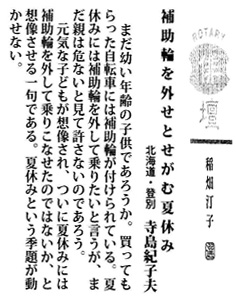 ROTARY
稲畑汀子
補助輪を外せとせがむ夏休み
北海道・登別 寺島紀子夫
まだ幼い年齢の子供であろうか。買っても
らった自転車には補助輪が付けられている。夏
休みには補助輪を外して乗りたいと言うが、ま
だ親は危ないと見て許さないのであろう。
元気な子どもが想像され、ついに夏休みには
補助輪を外して乗りこなせたのではないか、と
想像させる一句である。夏休みという季題が動
かせない。